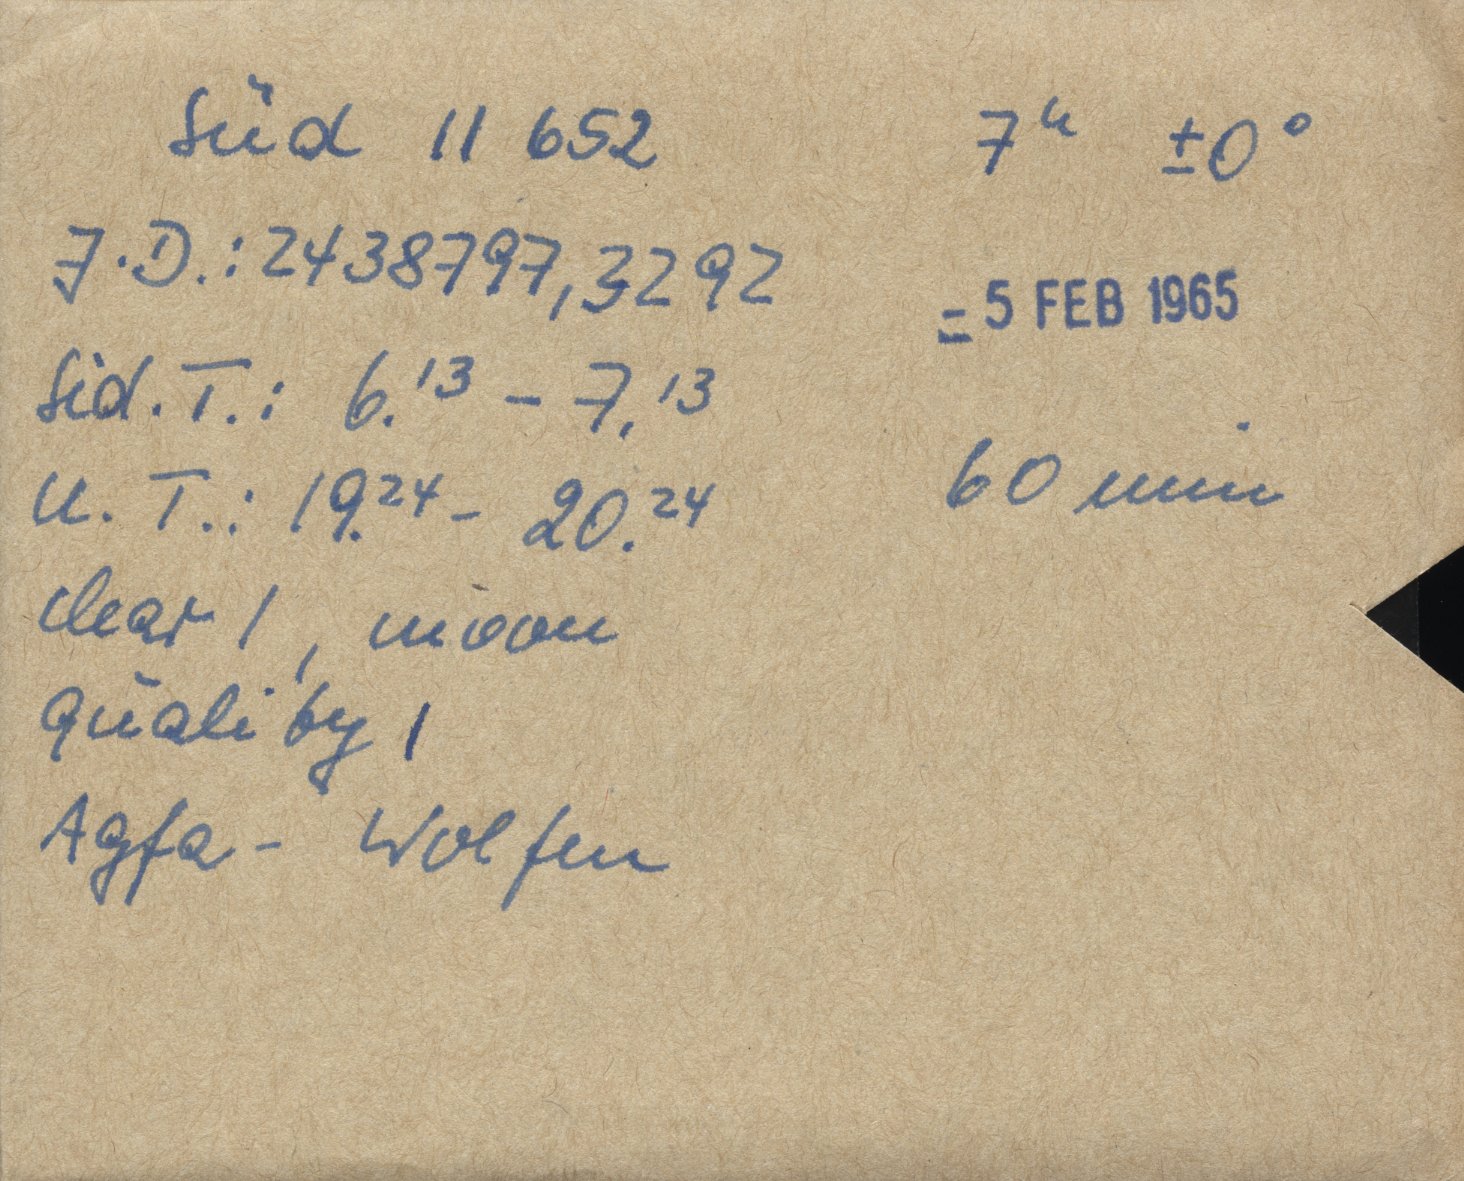 Süd 11 652 7ʰ ±0°
J.D.: 2438797,3292
- 5 FEB 1965
Sid. T.: 6.¹³ – 7.¹³
U. T.: 19.²⁴ – 20.²⁴ 60 min
clear 1, moon
quality 1
Agfa - Wolfen